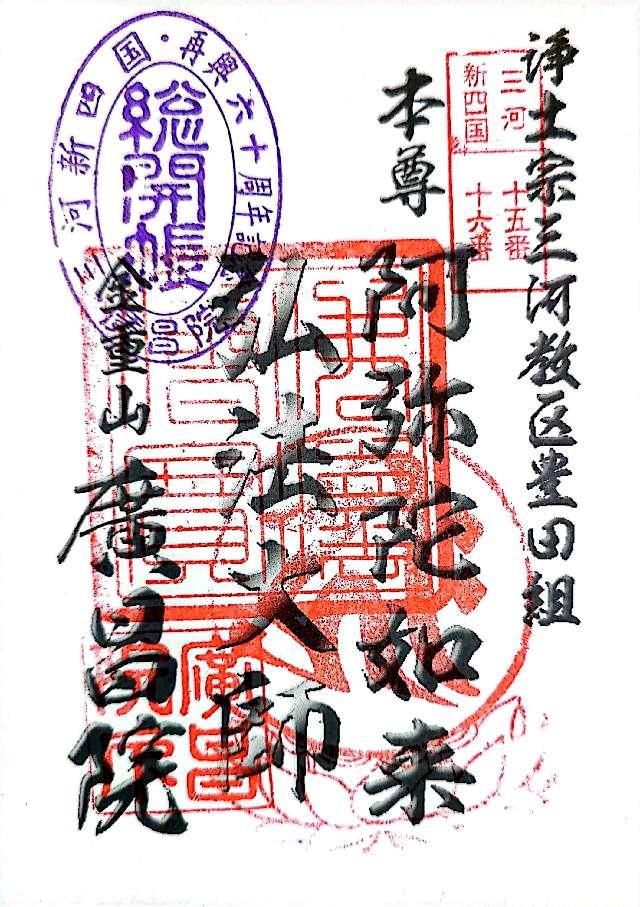 浄土宗三河教区豊田組
三河
新四国
十五番
十六番
本尊
阿弥陀如来
弘法大師
金重山
廣昌院
三河新四国・再興六十周年記
総開帳
昌院
廣昌
院